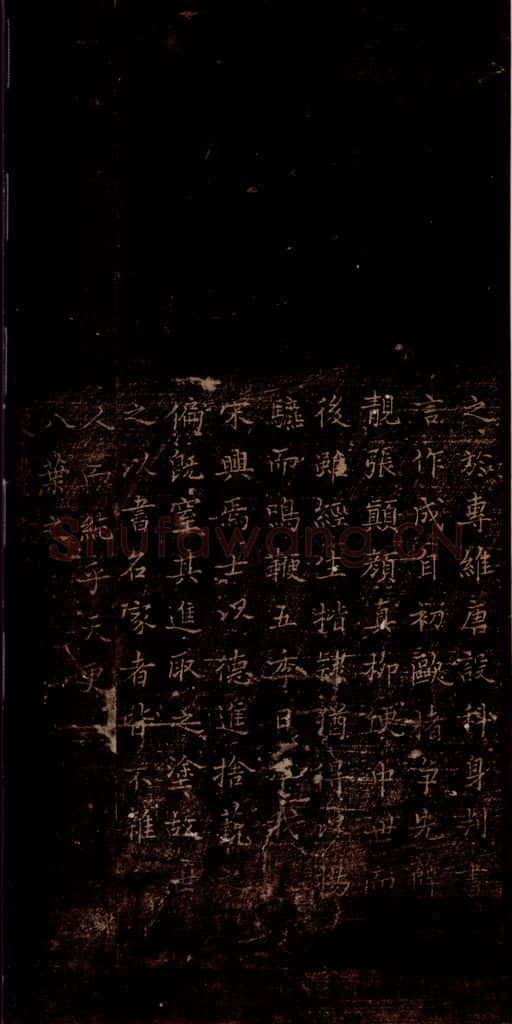 之於專維唐設科身判書
言作成自初歐楮爭先
靚張顛顏真柳硬中世而
後雖經生揩隸猶得以
而鳴鞭五季日
宋興焉士以德進捨藝之
偏既窒其進取之塗故世
之以書名家者皆不雜
人而純乎天更
八葉
Shufawang.CN